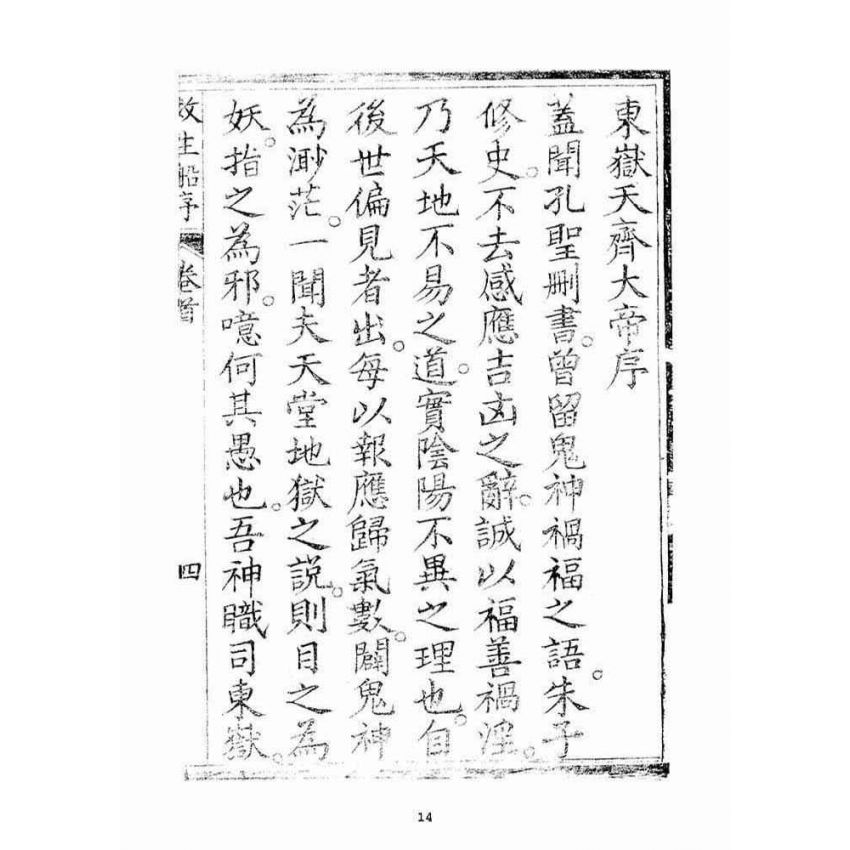 東嶽天齊大帝序
蓋聞孔聖刪書。曾留鬼神禍福之語。朱子
修史。不去感應吉凶之辭。誠以福善禍淫。
乃天地不易之道。實陰陽不異之理也。自
後世偏見者出。每以報應歸氣數。闢鬼神
為渺茫。一聞夫天堂地獄之說。則目之為
妖。指之為邪。噫何其愚也。吾神職司東嶽。
救生船序 卷首 四
14